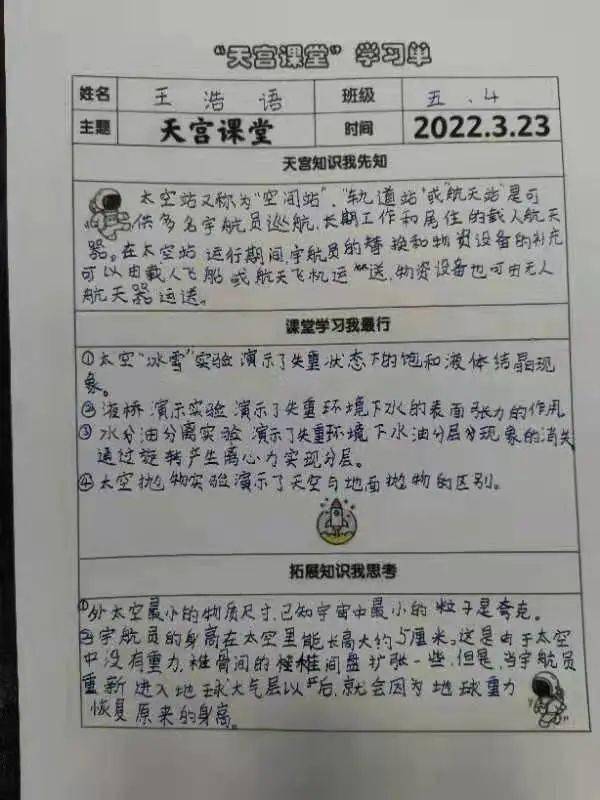 “天宫课堂”学习单
姓名 王浩语 班级 五.4
主题 天宫课堂 时间 2022.3.23
天宫知识我先知
太空站又称为“空间站”,“轨道站”或“航天站”是可
供多名宇航员巡航,长期工作和居住的载人航天
器。在太空站运行期间,宇航员的替换和物资设备的补充
可以由载人飞船或航天飞机运送,物资设备也可由无人
航天器运送。
课堂学习我最行
①太空“冰雪”实验演示了失重状态下的饱和液体结晶现
象。
②液桥演示实验演示了失重环境下水的表面张力的作用
③水分油分离实验演示了失重环境下水油分层分现象的消失
通过旋转产生离心力实现分层。
④太空抛物实验演示了天空与地面抛物的区别。
拓展知识我思考
①外太空最小的物质尺寸,已知宇宙中最小的粒子是夸克。
②宇航员的身高在太空里能长高大约5厘米。这是由于太空
中没有重力,椎骨间的椎间盘扩张一些,但是,当宇航员
重新进入地球大气层以后,就会因为地球重力
恢复原来的身高。